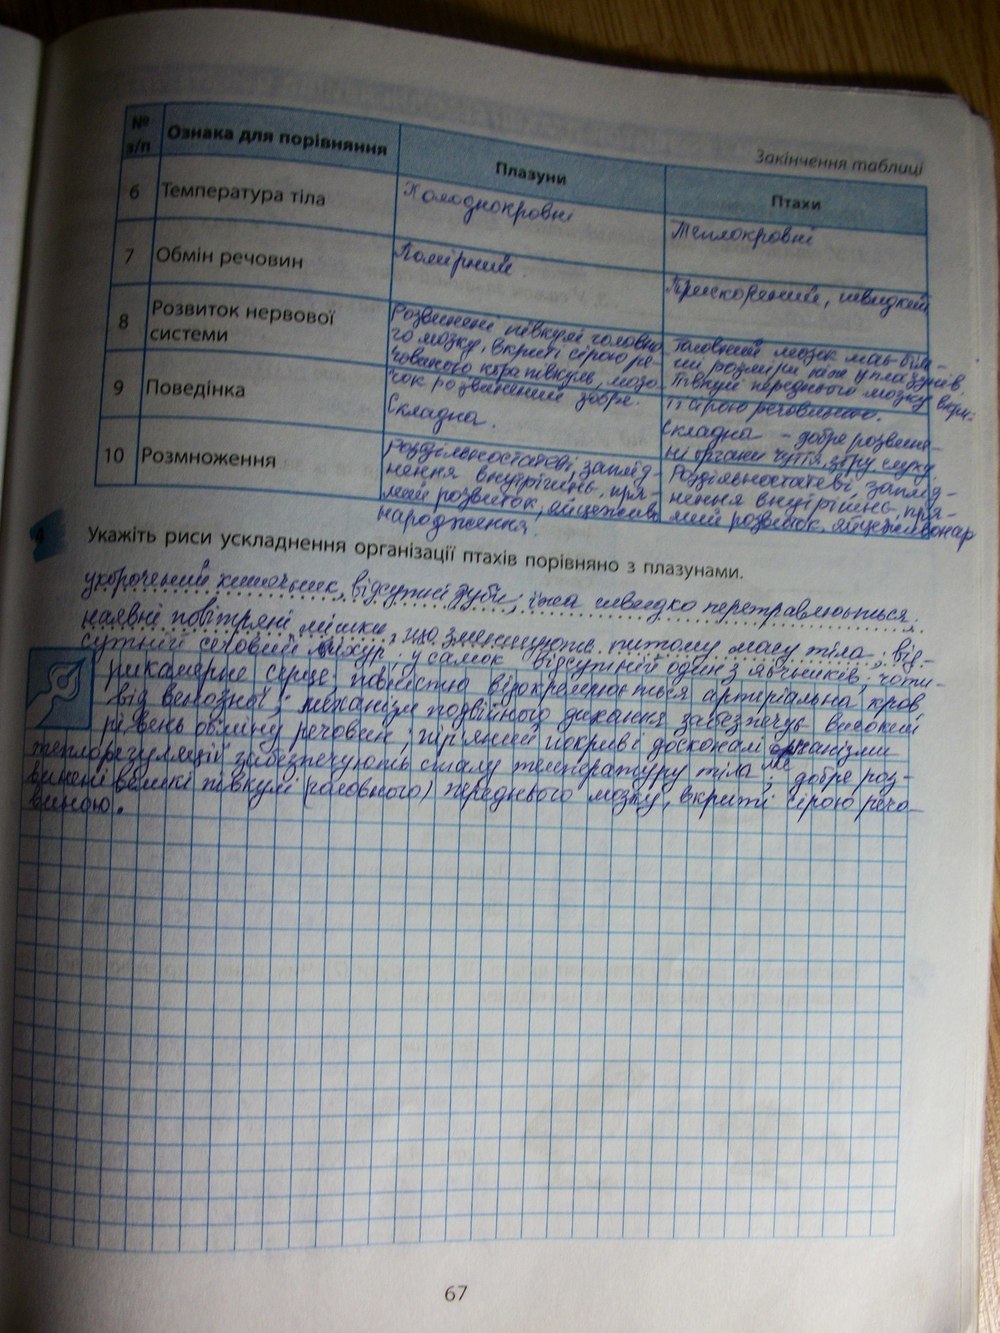 Закінчення таблиці
№ з/п
Ознака для порівняння
Плазуни
Птахи
6
Температура тіла
Холоднокровні
Теплокровні
7
Обмін речовин
Помірний.
Прискорений, швидкий
8
Розвиток нервової
системи
Розвинені півкулі головно-
го мозку, вкриті сірою ре-
човиною кора півкуль, мозо-
чок розвинений добре.
Головний мозок має біль-
ші розміри ніж у плазунів
Півкулі переднього мозку вкри-
ті сірою речовиною.
9
Поведінка
Складна.
Складна – добре розвине-
ні органи чуття зору, слуху.
10
Розмноження
Роздільностатеві, заплід-
нення внутрішнє, пря-
мий розвиток, яйцеживо
народження.
Роздільностатеві, заплід-
нення внутрішнє, пря-
мий розвиток, яйцеживонар
4
Укажіть риси ускладнення організації птахів порівняно з плазунами.
укорочений кишечник, відсутні зуби, їжа швидко перетравлюється,
наявні повітряні мішки, що зменшують питому масу тіла; від-
сутній сечовий міхур, у самок відсутній один з яєчників; чоти-
рикамерне серце повністю відокремлюється артеріальна кров
від венозної; механізм подвійного дихання забезпечує високий
рівень обміну речовин; пір'яний покрив і досконалі механізми
терморегуляції забезпечують сталу температуру тіла; добре роз-
винені великі півкулі (головного) переднього мозку, вкриті сірою речо-
виною.
67